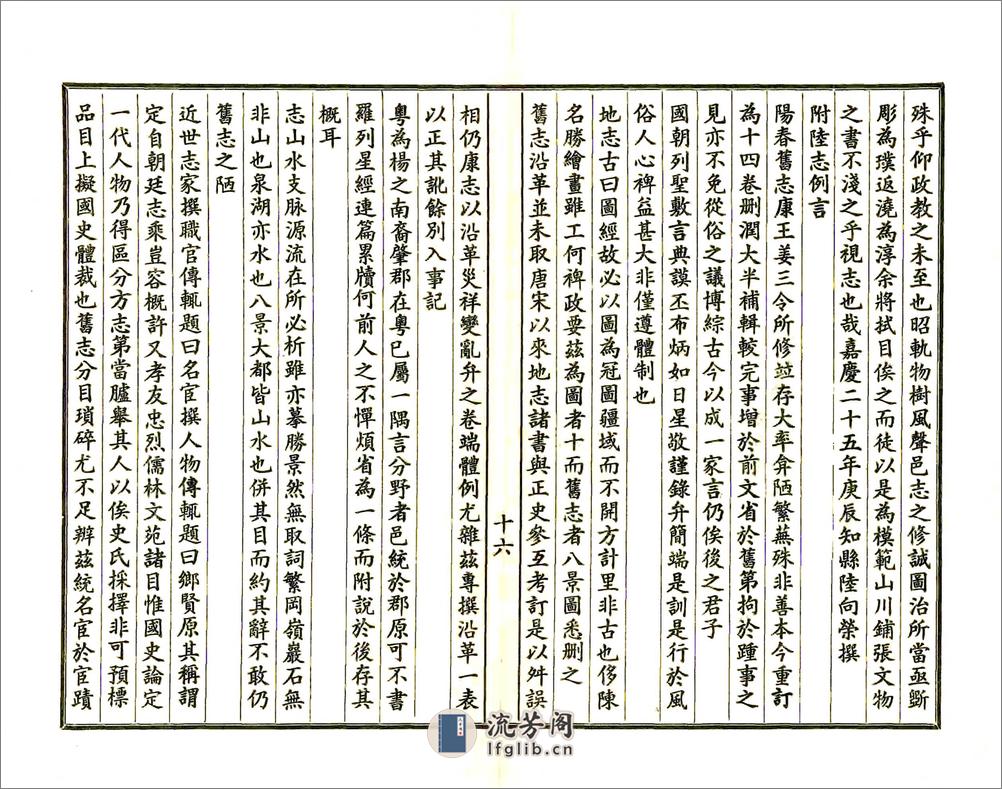 殊乎仰政教之未至也昭軌物樹風聲邑志之修誠圖治所當亟斲
彫為璞返澆為淳余將拭目俟之而徒以是為模範山川鋪張文物
之書不淺之乎視志也哉嘉慶二十五年庚辰知縣陸向榮撰
附陸志例言
陽春舊志康王姜三令所修竝存大率弇陋繁蕪殊非善本今重訂
為十四卷刪潤大半補輯較完事增於前文省於舊第拘於踵事之
見亦不免從俗之議博綜古今以成一家言仍俟後之君子
國朝列聖敷言典謨丕布炳如日星敬謹錄弁簡端是訓是行於風
俗人心裨益甚大非僅遵體制也
地志古曰圖經故必以圖為冠圖疆域而不開方計里非古也侈陳
名勝繪畫雖工何裨政要茲為圖者十而舊志者八景圖悉刪之
舊志沿革並未取唐宋以來地志諸書與正史參互考訂是以舛誤
十六
相仍康志以沿革災祥變亂弁之卷端體例尤雜茲專撰沿革一表
以正其訛餘別入事記
粵為楊之南裔肇郡在粵已屬一隅言分野者邑統於郡原可不書
羅列星經連篇累牘何前人之不憚煩省為一條而附說於後存其
概耳
志山水支脉源流在所必析雖亦摹勝景然無取詞繁岡嶺巖石無
非山也泉湖亦水也八景大都皆山水也併其目而約其辭不敢仍
舊志之陋
近世志家撰職官傳輒題曰名宦撰人物傳輒題曰鄉賢原其稱謂
定自朝廷志乘豈容概許又孝友忠烈儒林文苑諸目惟國史論定
一代人物乃得區分方志第當臚舉其人以俟史氏採擇非可預標
品目上擬國史體裁也舊志分目瑣碎尤不足辨茲統名宦於宦蹟
流芳阁
lfglib.cn